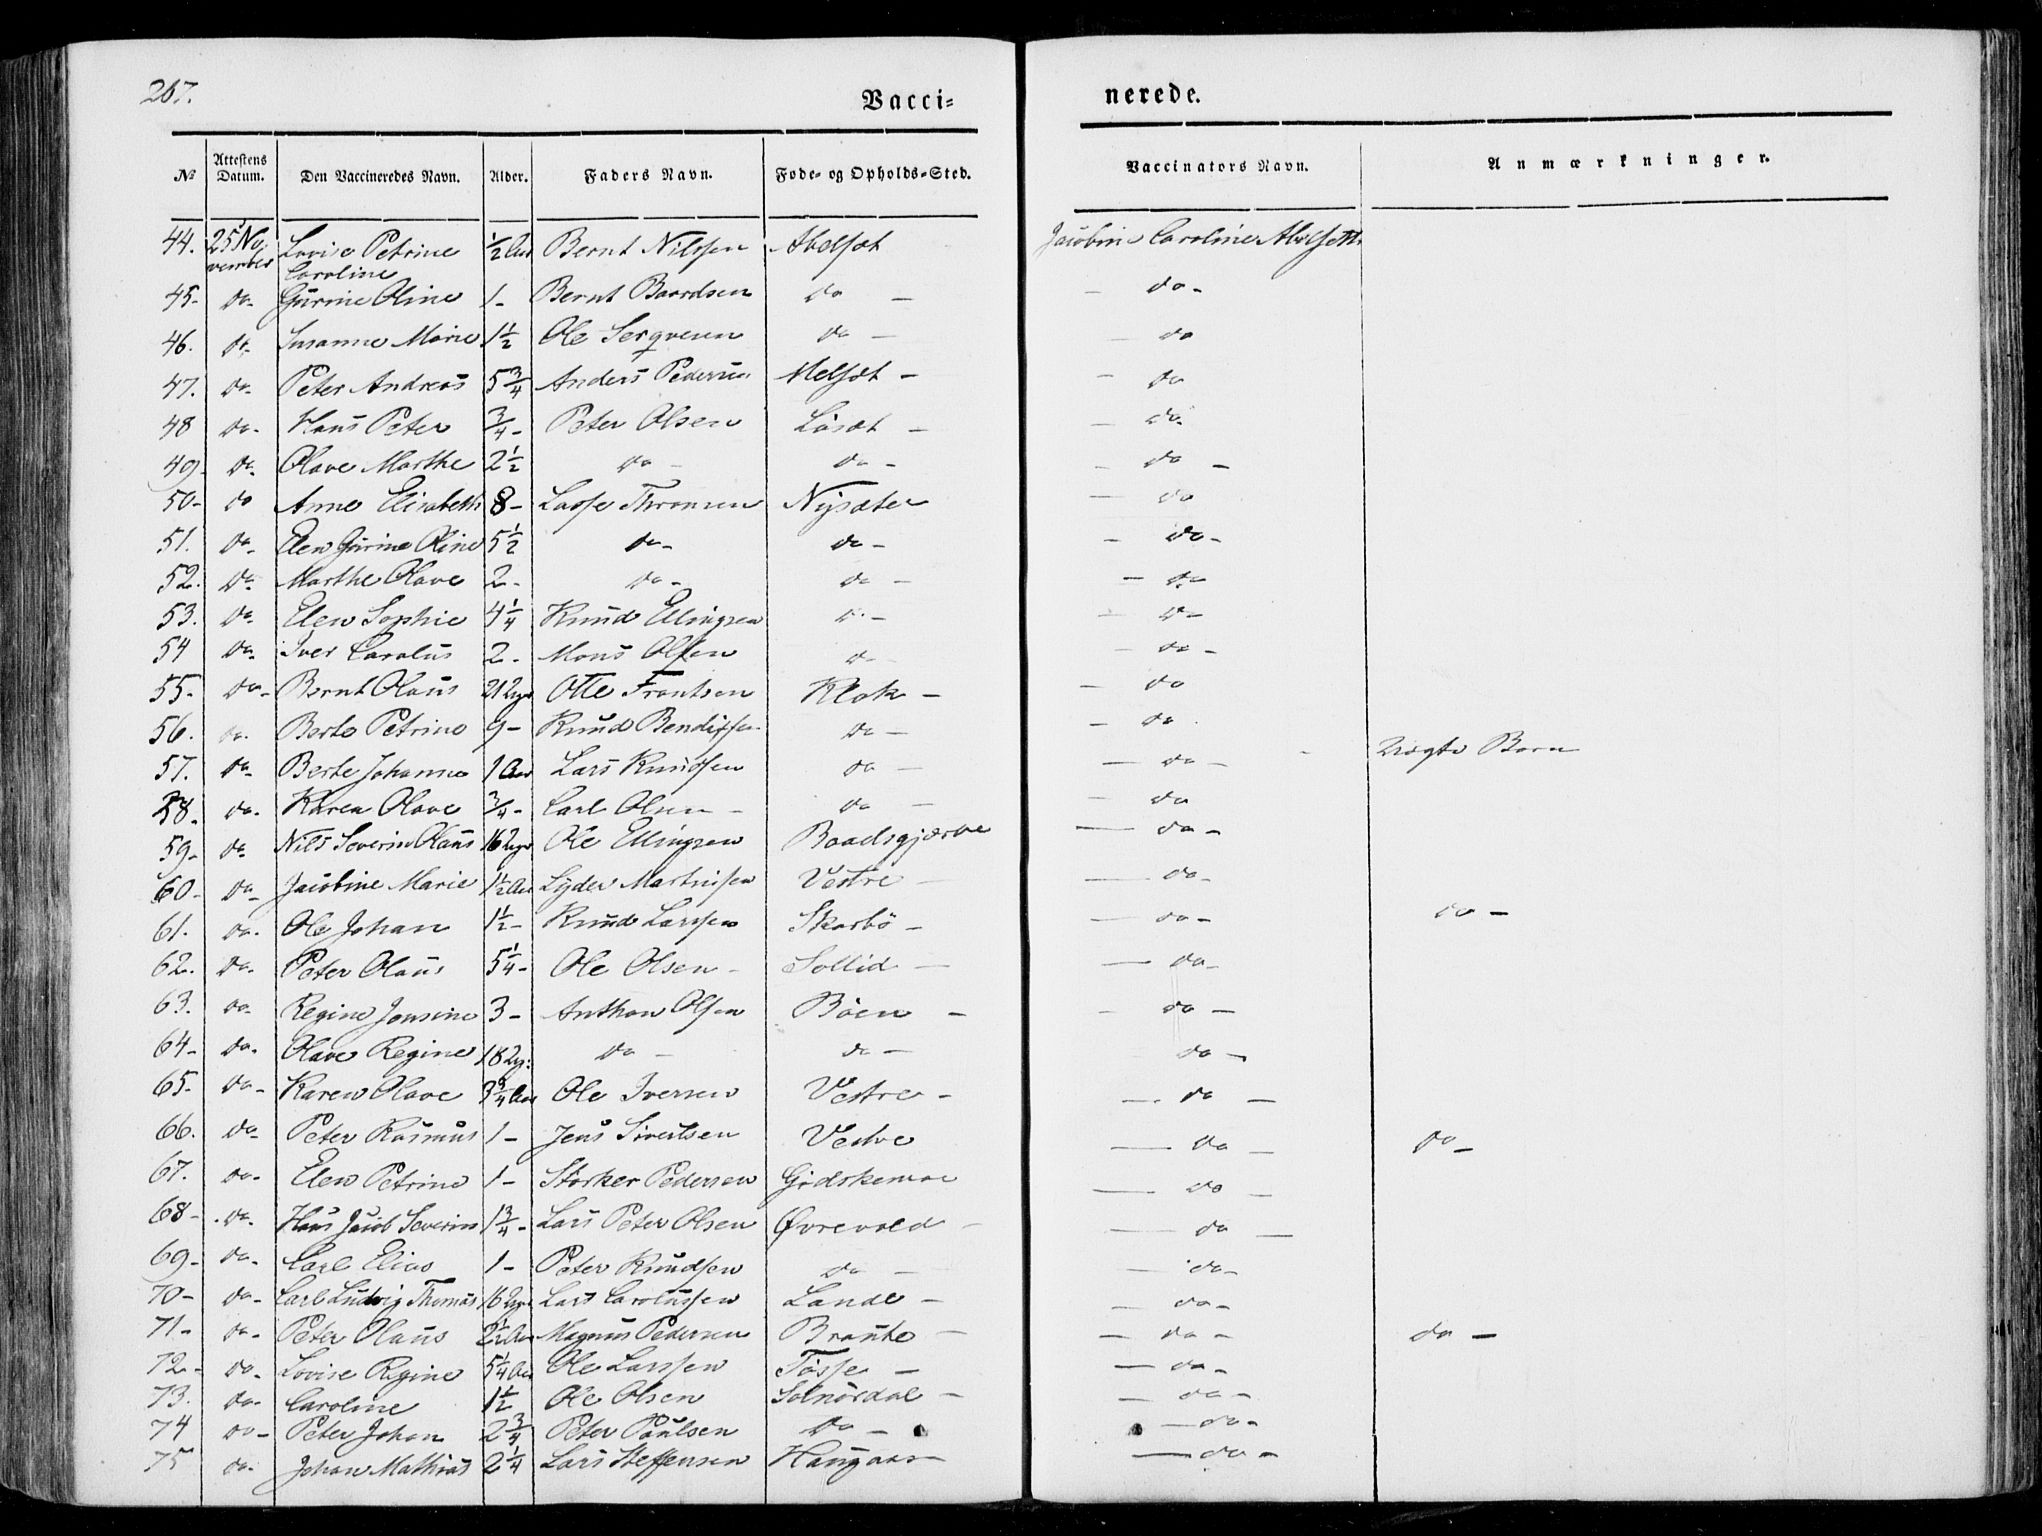 267.
Vacci-
nerede.
№ Attestens Datum. Den Vaccineredes Navn. Alder. Faders Navn. Føde- og Opholds-Sted. Vaccinators Navn. Anmærkninger.
44. 25 November Lovise Petrine Caroline ½ Aar Bernt Nilssen Abelsæt Jacobine Caroline Abelseth
45- do- Gurine Oline 1- Bernt Baardsen do - - do-
46. do- Susanne Marie 1½ Ole do - - do
47. do- Peter Andreas 5¾ Anders Pedersen Melsæt - - do
48 do- Hans Peter ¾- Peter Olsen Løsæt - - do-
49- do- Olave Marthe 2½ do - do - - do -
50- do Anne Elisabeth 8- Lasse Thronsen Nysæter - do
51. do- Elen Gurine Oline 5½ do- do - - do-
52. do- Marthe Olave 2- do- do - - do
53. do- Elen Sophie 4¼ Knud Ellingsen do - - do-
54 do- Iver Carolus 2- Mons Olsen do - - do -
55- do- Bernt Olaus 21 Ugr Otte Frantsen Klok - - do
56. do- Berte Petrine 9- Knud Bendixsen do - - do
57. do- Berte Johanne 1 Aar Lars Knudsen do - - do - Ægte Barn
58. do- Karen Olave ¾- Carl Olsen - do - - do
59- do- Nils Severin Olaus 16 Ugr Ole Ellingsen Baadsgjærde - do-
60- do- Jacobine Marie 1½ Aar Lyder Martinsen Vestre - - do-
61. do- Ole Johan 1½- Knud Larssen Skarbø - - do - do -
62. do- Peter Olaus 5¼- Ole Olsen - Sollid - - do-
63. do- Regine Jonsine 3- Anthon Olsen Bøen - - do -
64- do- Olave Regine 18 Ug: do - do - do -
65- do- Karen Olave 3¾ Aar Ole Iversen Vestre - - do -
66. do- Peter Rasmus 1- Jens Sivertsen Vestre - do - do -
67. do- Elen Petrine 1- Størker Pedersen Gjødskemoe - do -
68- do- Hans Jacob Severin 1¾- Lars Peter Olsen Øvrevold - - do -
69- do- Carl Elias 1- Peter Knudsen do - - do-
70- do- Carl Ludvig Thomas 16 Ugr Lars Carolussen Lande - - do-
71- do- Peter Olaus 2½ Aar Magnus Pedersen Braute - - do - do -
72- do- Lovise Regine 5¼ Aar Ole Larssen Tøsse - - do-
73. do- Caroline 1½ Ole Olsen Solnørdal - - do -
74 do- Peter Johan 2¾ Peter Poulsen do - - do-
75 do- Johan Mathias 2¼ Lars Steffensen Haugaas - do -